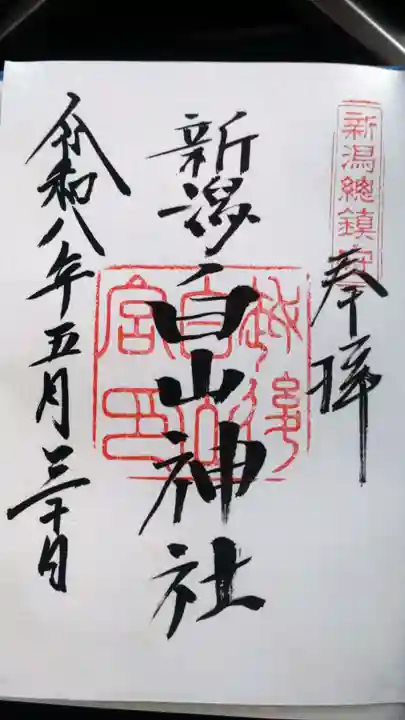 新潟總鎮守
奉拝
新潟白山神社
越後白山宮印
令和八年五月三十日